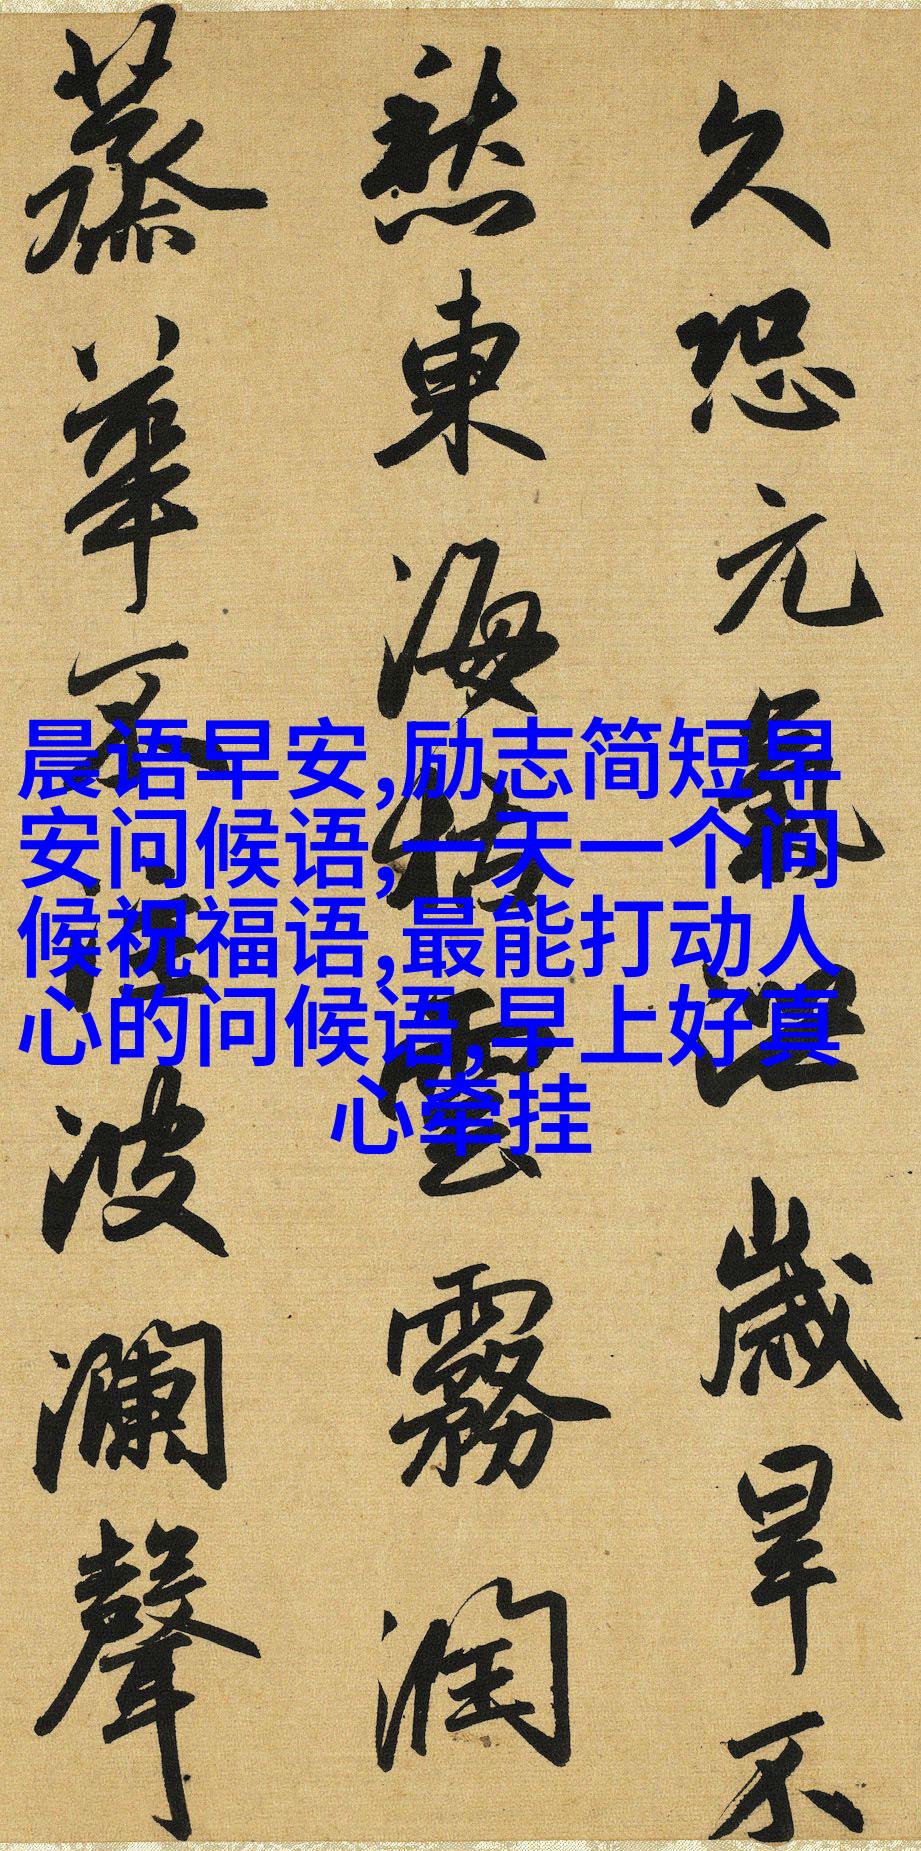 久恐元氣泄歲旱不
愁東海枯雲霧潤
蒸華不注波瀾聲
晨语早安,励志简短早
安问候语,一天一个问
候祝福语,最能打动人
心的问候语,早上好真
心牵挂